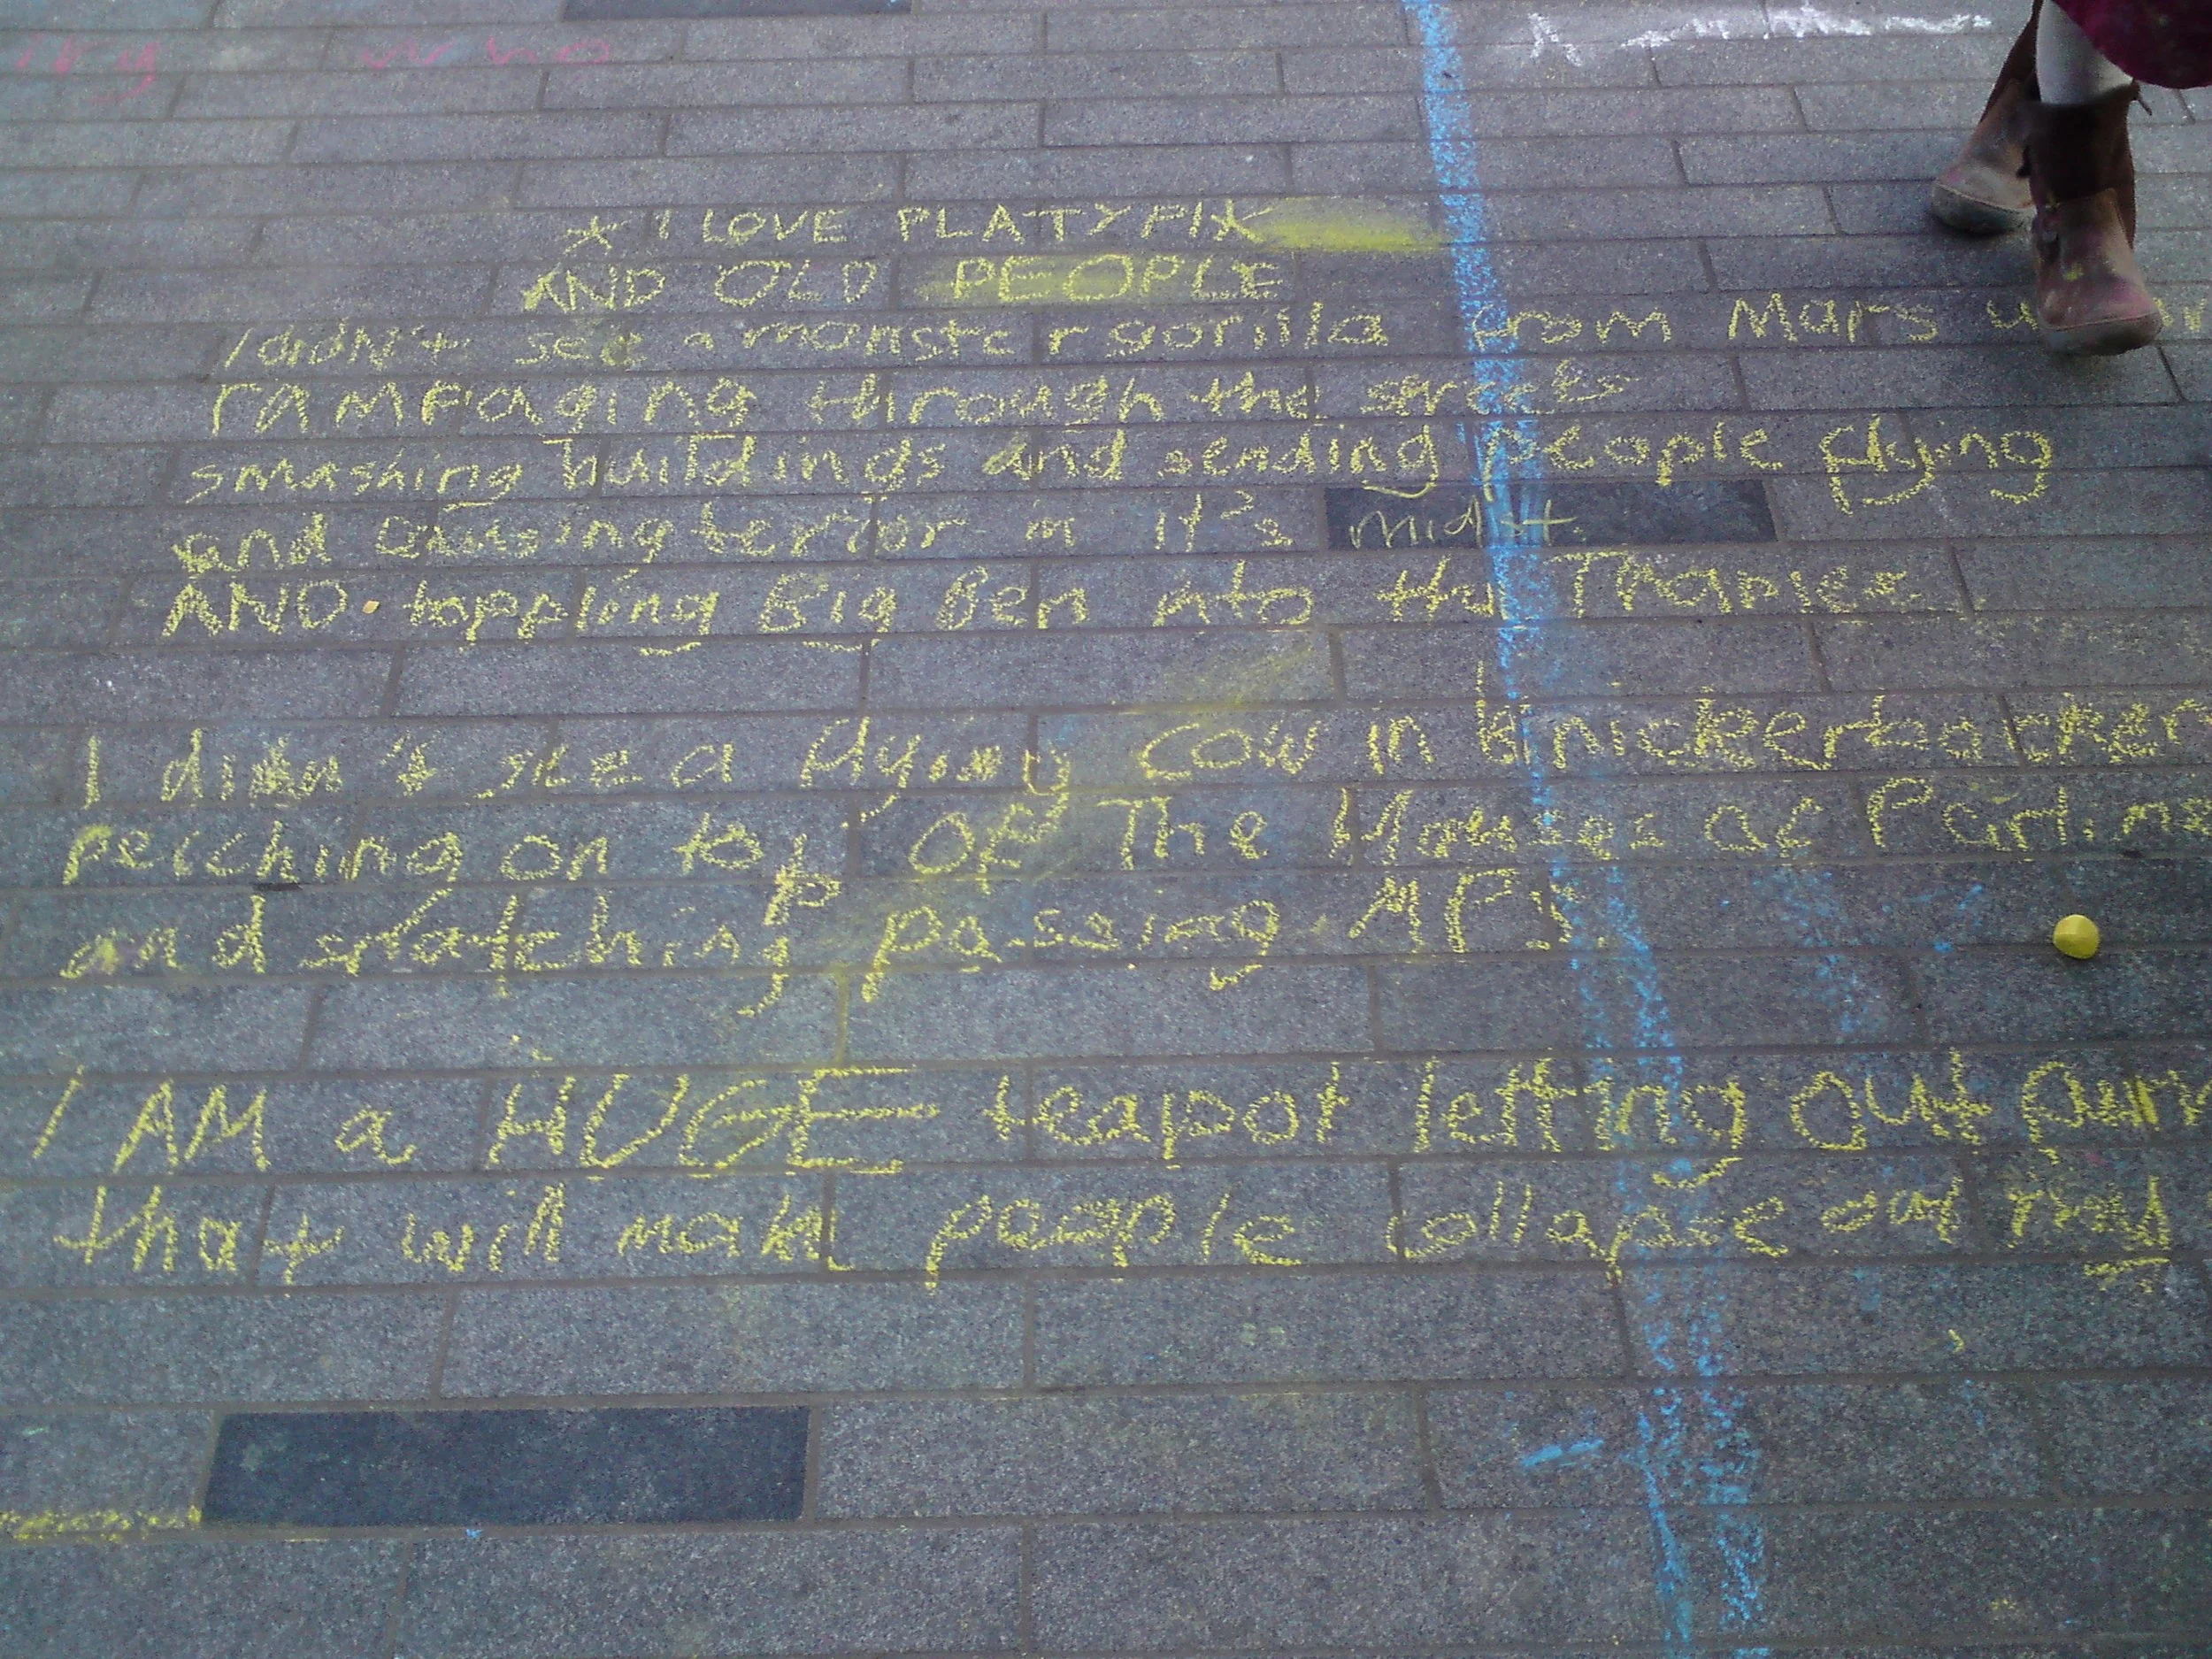 who
* I LOVE PLATYPIX
AND OLD PEOPLE
I didn't see a monster gorilla from Mars
rampaging through the streets
smashing buildings and sending people flying
and causing terror in it's midst
AND toppling Big Ben into the Thames
I didn't see a flying cow in knickerbocker
perching on top of The Houses of Parlim
and snatching passing MPs.
I AM a HUGE teapot letting out
that will make people collapse